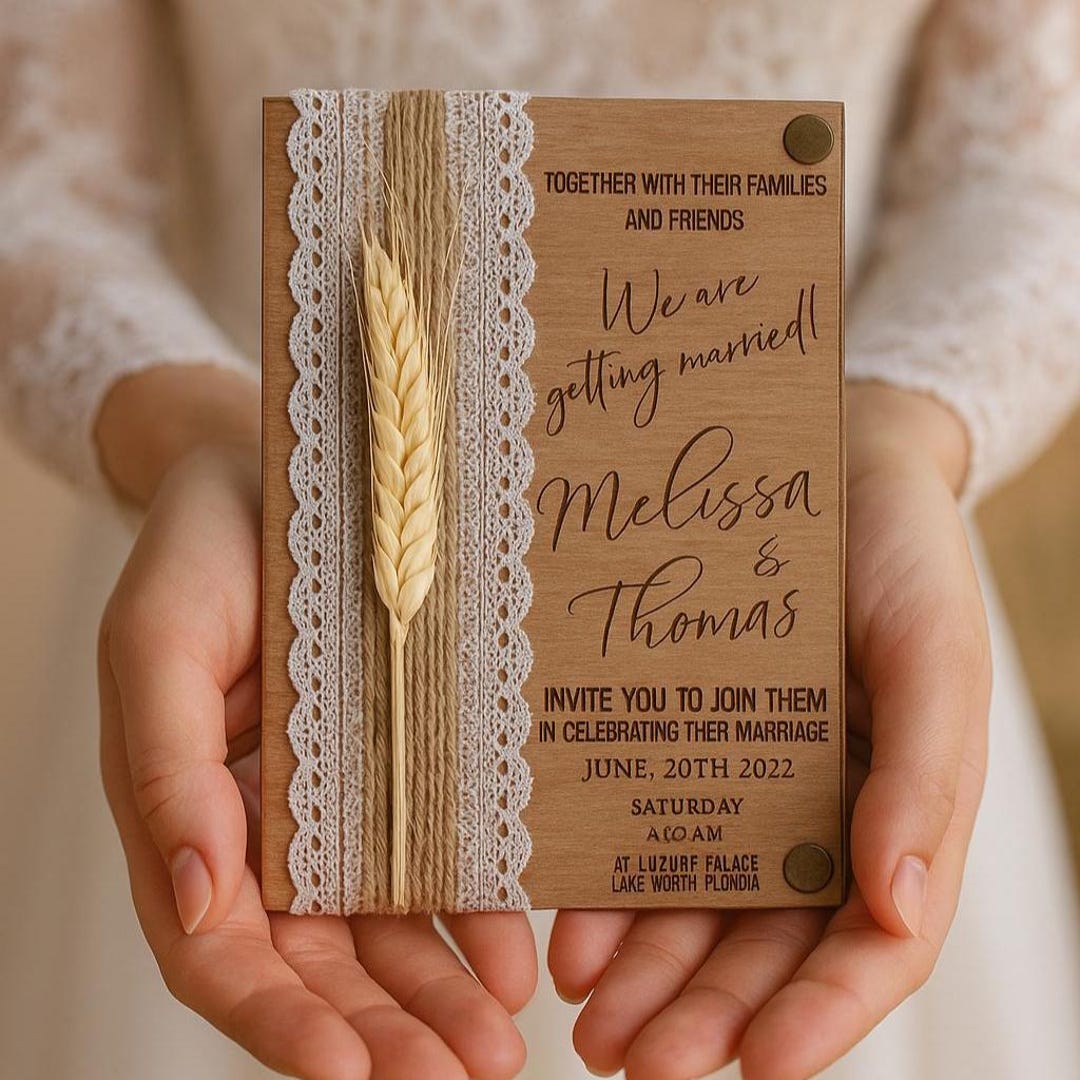 TOGETHER WITH THEIR FAMILIES
AND FRIENDS
We are
getting married!
Melissa
&
Thomas
INVITE YOU TO JOIN THEM
IN CELEBRATING THER MARRIAGE
JUNE, 20TH 2022
SATURDAY
AM
AT LUZURF FALACE
LAKE WORTH PLONDIA